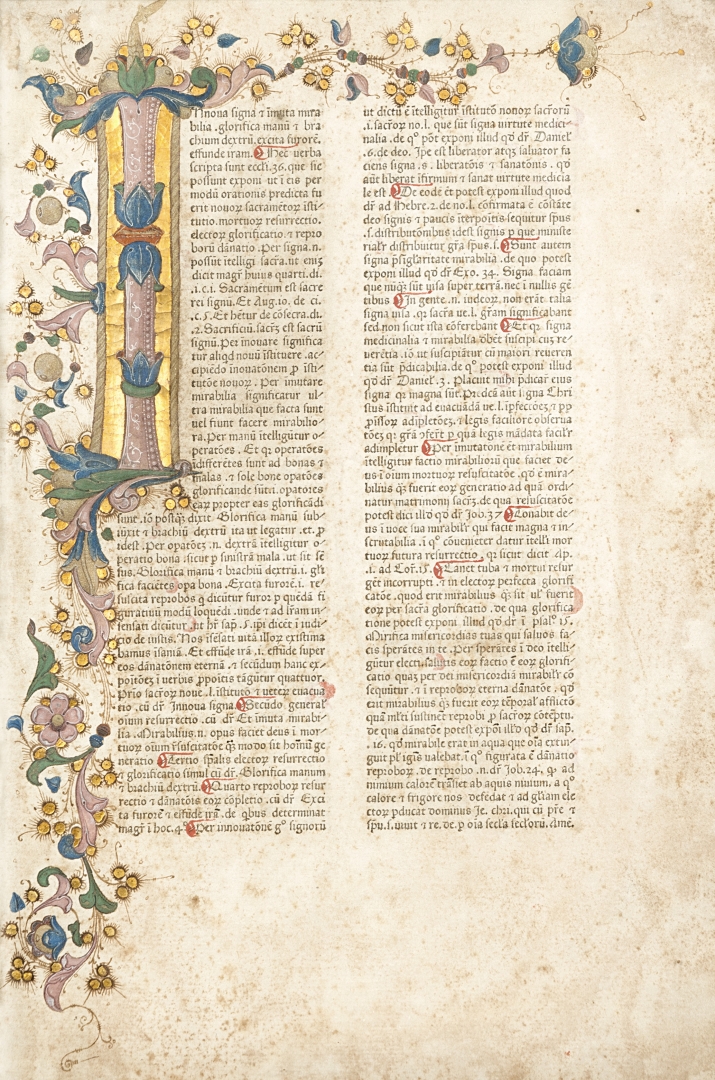 Nnoua signa ⁊ īmuta mira
bilia .glorifica manū ⁊ bra
chium dextrū .excita furorē.
effunde iram. Hec verba
scripta sunt eccli.36. que sic
possunt exponi ut i eis per
modū orationis predicta fu
erit nouoꝝ sacramētoꝝ īsti⸗
tutio .mortuoꝝ resurrectio.
electoꝝ glorificatio ⁊ repro
boꝝ dānatio .Per signa .n.
possūt itelligi sacra. ut em̄
dicit magr̄ huius quarti. di.
.i. c. i. Sacramētum est sacre
rei signū. Et Aug. io. de ci.
.c. 5. Et hētur de cōsecra. di.
.2. Sacrificiū. sacrm̄ est sacrū
signū. Per inouare significa
tur aliqd nouū īstituere .ac⸗
cipiēdo inouatōnem ꝓ isti⸗
tutōe nouoꝝ . Per imutare
mirabilia significatur ul⸗
tra mirabilia que facta sunt
uel fiunt facere mirabilio⸗
ra. Per manū itelligūtur o⸗
peratōes . Et qꝛ operatōes
idifferētes sunt ad bonas ⁊
malas . ⁊ sole bone opatōes
glorificande sūt ⁊ .opatores
eaꝝ propter eas glorificādi
sunt .iō postqꝫ dixit. Glorifica manū sub⸗
iūxit ⁊ brachiū dextrū ita ut legatur .et .p
idest. Per opatōeꝫ .n. dextrā itelligitur o⸗
peratio bona .sicut p sinistrā mala. ut sit sē
sus. Glorifica manū ⁊ brachiū dextrū .i. gli
fica faciētes opa bona. Excita furorē .i. re⸗
suscita reprobos q dicūtur furor p quēdā fi
guratiuū modū loquēdi . unde ⁊ ad lr̄am in⸗
sensati dicūtur .ut hr̄ sap. 5. ipi dicēt i iudi⸗
cio de iustis. Nos isēsati uitā illoꝝ existima
bamus isaniā. Et effūde irā .i. effūde super
eos dānatōnem eternā . ⁊ secūdum hanc ex⸗
poitōeꝫ i uerbis ꝓpoitis tāgūtur quattuoꝝ.
Prio sacroꝝ noue .l. istituto ⁊ ueteꝝ euacua
tio .cū dr̄ Innoua signa. Secūdo general
oium resurrectio .cū dr̄ Et imuta mirabi⸗
lia . Mirabilius .n. opus faciet deus i mor⸗
tuoꝝ oium r̄suscitatōe qꝫ modo sit hoīnū ge
neratio Tertio spalis electoꝝ resurrectio
⁊ glorificatio simul cū dr̄. Glorifica manum
⁊ brachiū dextrū. Quarto reproboꝝ resur
rectio ⁊ dānatōis eoꝝ cōpletio .cū dr̄ Exci
ta furorē ⁊ effūde irā. de qbus determinat
magr̄ i hoc .4. Per innouatōnē gº signorū
ut dictū ē itelligitur istitutō nouoꝝ sacr̄orū
.i. sacroꝝ no. l. que sūt signa virtute medici⸗
nalia . de qº pōt exponi illud qd dr̄ Daniel'
.6. de deo. Ipe est liberator atqꝫ saluator fa
ciens signa .s. liberatōis ⁊ sanatōnis . qd
aūt liberat ifirmum ⁊ sanat virtute medicīa
le est. De eode ēt potest exponi illud quod
dr̄ ad Hebre. 2. de no. l. cōfirmata ē cōstāte
deo signis ⁊ paucis iterpoitis sequitur spus
.s. distributōnibus idest signis p que ministe
rialr̄ distribuitur gr̄a spus .s. Sunt autem
signa psiglaritate mirabilia . de quo potest
exponi illud qd dr̄ Exo. 34. Signa faciam
que nūqꝫ sūt uisa super terrā. nec i nullis gē
tibus In gente .n. iudeoꝝ .non erāt talia
signa uisa .qꝫ sacra ue. l. gr̄am significabant
sed non sicut ista cōferebant Et qꝛ signa
medicinalia ⁊ mirabilia dbēt suscipi cuꝫ re⸗
uerētia .iō ut suscipiātur cū maiori reueren
tia sūt p̄dicabilia. de qº potest exponi illud
qd dr̄ Daniel'. 3. Placuit mihi p̄dicar eius
signa qꝛ magna sūt. Predcā aūt signa Chri
stus istituit ad euacuādā ue. l. ipfectōeꝫ ⁊ pp
pissioꝝ adimpletōeꝫ. ⁊ legis faciliorē obserua
tōeꝫ qꝫ gr̄ā ꝯfert p quā legis mādata facilr̄
adimpletur Per imutatonē ēt mirabilium
itelligitur factio mirabilioꝝ que faciet de⸗
us i oium mortuoꝝ resuscitatōe .qd ē mira⸗
bilius qꝫ fuerit eoꝝ generatio ad quā ordi⸗
natur matrimonij sacrꝫ. de qua resuscitatōe
potest dici illd qd dr̄ Job. 37 Tonabit de⸗
us i uoce sua mirabilr̄ qui facit magna ⁊ in⸗
scrutabilia . i qº cōuenieter datur itelli mor
tuoꝝ futura resurrectio . qꝛ sicut dicit Ap.
.i. ad Cor̄. i5. Canet tuba ⁊ mortui resur
gēt incorrupti . ⁊ in electoꝝ perfecta glorifi
catōe. quod erit mirabilius qꝫ sit ul' fuerit
eoꝝ per sacrā glorificatio . de qua glorifica
tione potest exponi illud qd dr̄ i psal'. i5.
Mirifica misericordias tuas qui saluos fa⸗
cis sperātes in te. Per sperātes i deo itelli⸗
gūtur electi .saluatis eoꝝ factio ē eoꝝ glorifi⸗
catio quaꝫ per dei misericordiā mirabilr̄ cō
sequūtur . ⁊ i reproboꝝ eterna dānatōe . qd
erit mirabilius qꝫ fuerit eoꝝ tēporal' afflictō
quā ml'ti sustinēt reprobi p sacroꝝ cōtēptu.
de qua dānatōe potest expōi ill'd qd dr̄ sap.
. i6. qd mirabile erat in aqua que oīa extin⸗
guit pl' ignis valebat. i qº figurata ē dānatio
reproboꝝ. de reprobo .n. dr̄ Job. 24. qꝫ ad
nimium calorē trāsiet ab aquis niuium. a qº
calore ⁊ frigore nos defēdat ⁊ ad gl'iam ele
ctoꝝ pducat dominus Je. chri. qui cū pr̄e ⁊
spū .s. uiuit ⁊ re. de. p oīa secl'a secl'orū. Amē.